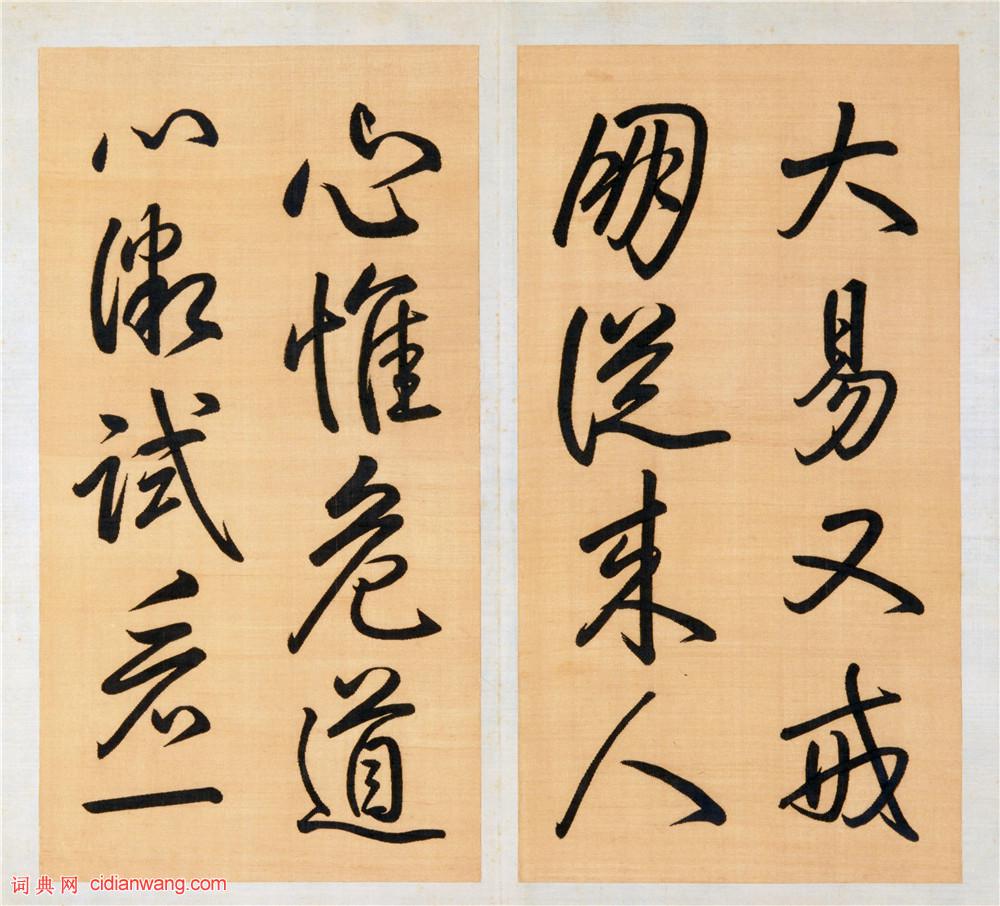 大易又戒
朋從來人
心惟危道
心微試看一
词典网 cidianwang.com